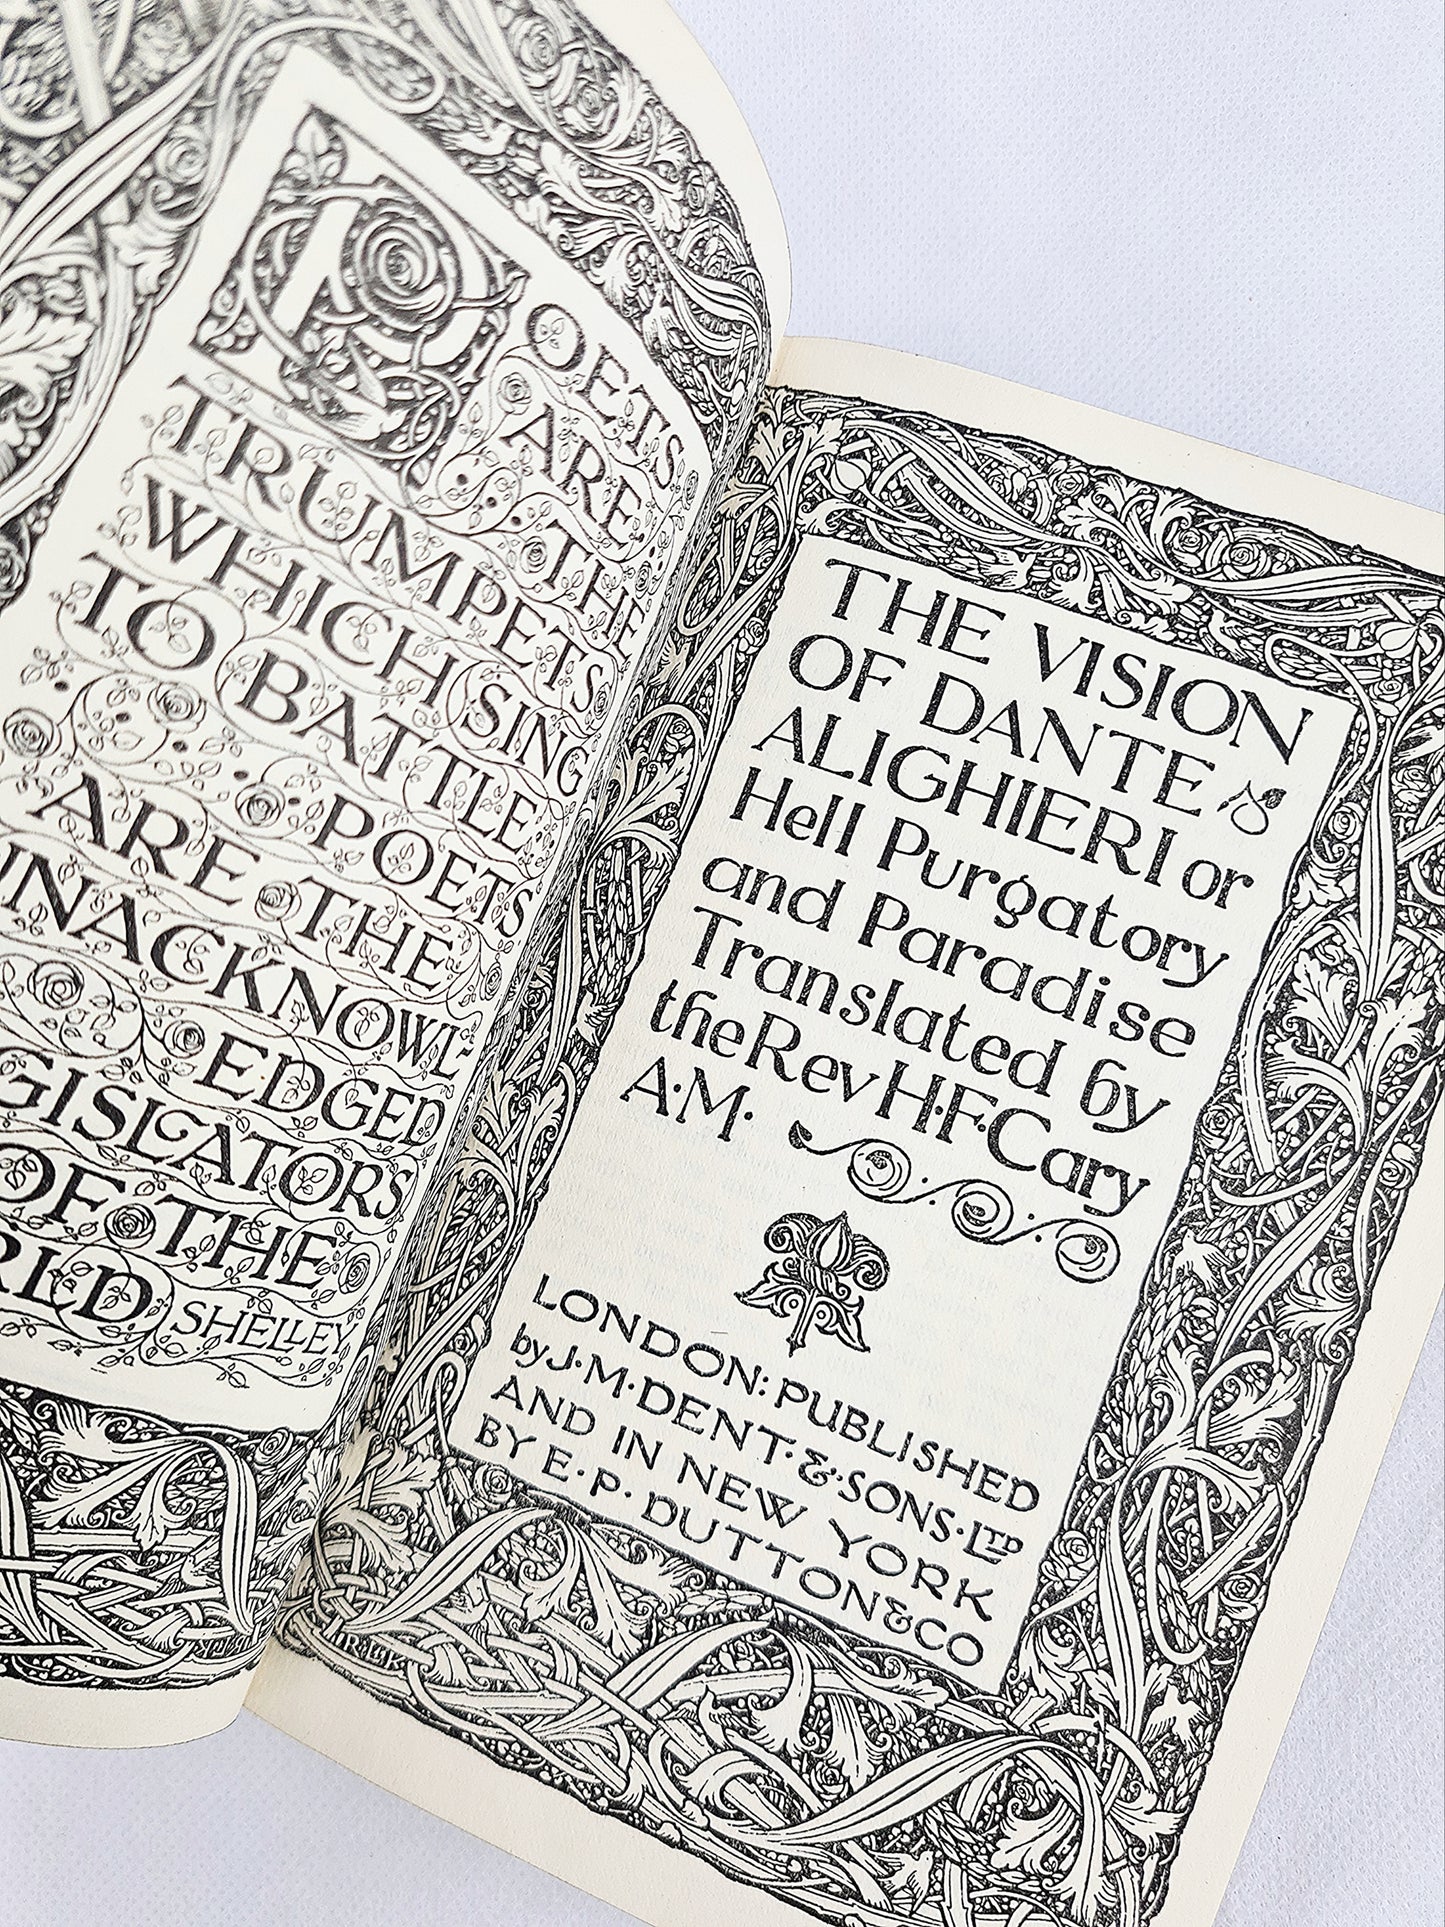 POETS
ARE THE
TRUMPETS
WHICH SING
TO BATTLE
POETS
ARE THE
UNACKNOWL-
EDGED
GISLATORS
OF THE
RLD SHELLEY
THE VISION
OF DANTE
ALIGHIERI or
Hell Purgatory
and Paradise
Translated by
the Rev H·F·Cary
A·M·
LONDON: PUBLISHED
by J·M·DENT·&·SONS·LTD
AND IN NEW YORK
BY E·P·DUTTON & CO